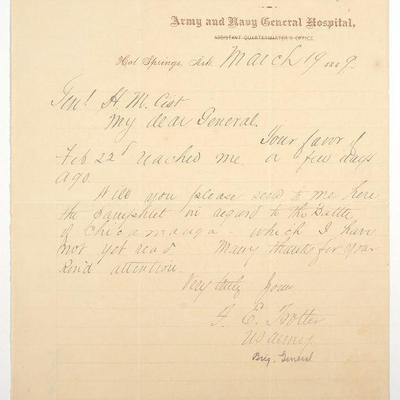 Army and Navy General Hospital,
ASSISTANT QUARTERMASTER'S OFFICE.
Hot Springs, Ark. March 19 1889.
Genl H. M. Cist
My dear General.
Your favor of
Feb 22d reached me a few days
ago.
Will you please send to me here
the pamphlet in regard to the Battle
of Chicamauga - which I have
not yet read Many thanks for your
kind attention.
Very truly yours
F. E. Trotter
US Army
Brig. General